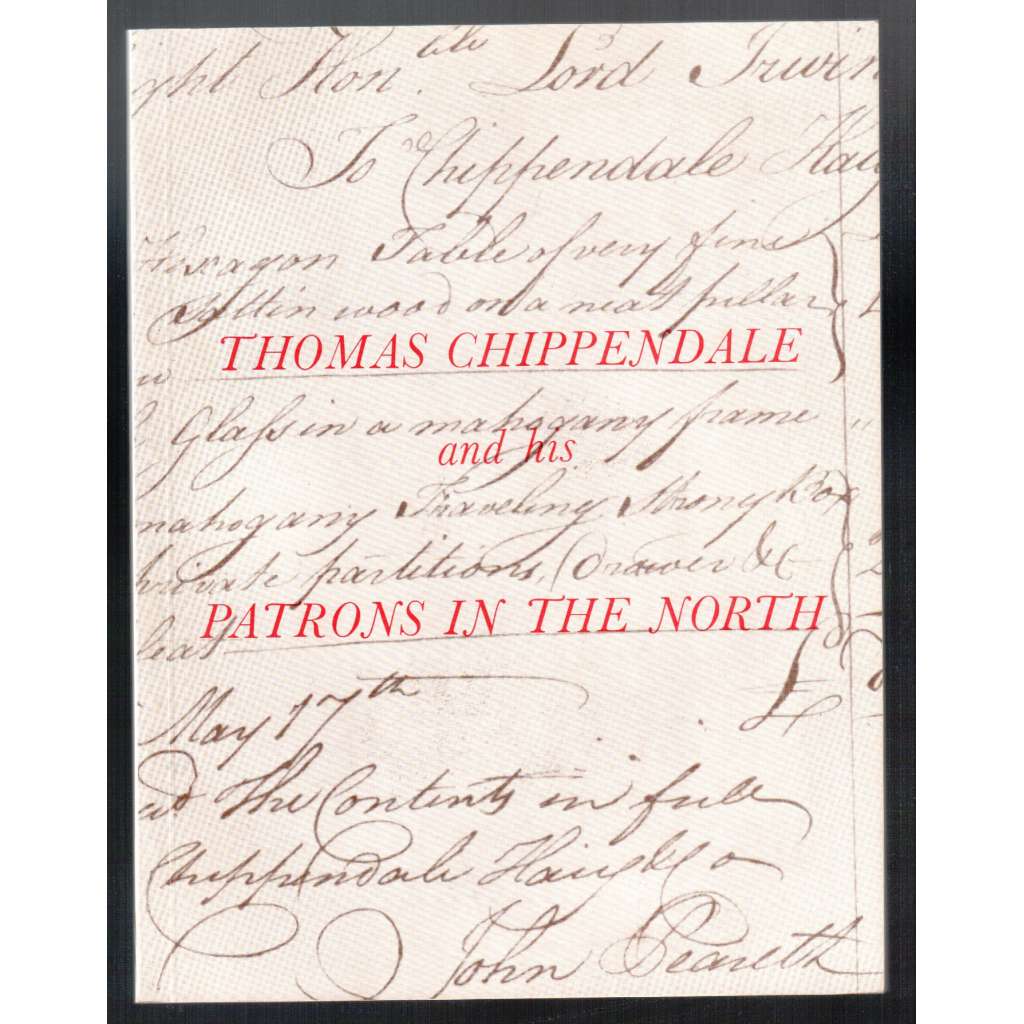 ght Honble. Lord Irwin
To Chippendale Haig
Hexagon Table of very fine
Sattin wood on a neat pillar
THOMAS CHIPPENDALE
Glass in a mahogany frame "
and his
mahogany Traveling Strong Box
private partitions, Drawer &c
PATRONS IN THE NORTH
leat
£
May 17th
The Contents in full
Chippendale Haig & Co
John Peareth